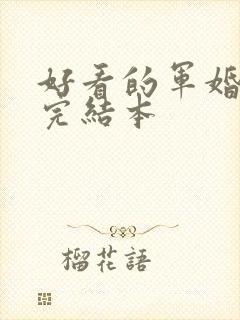 好看的軍婚
完結本
榴花語